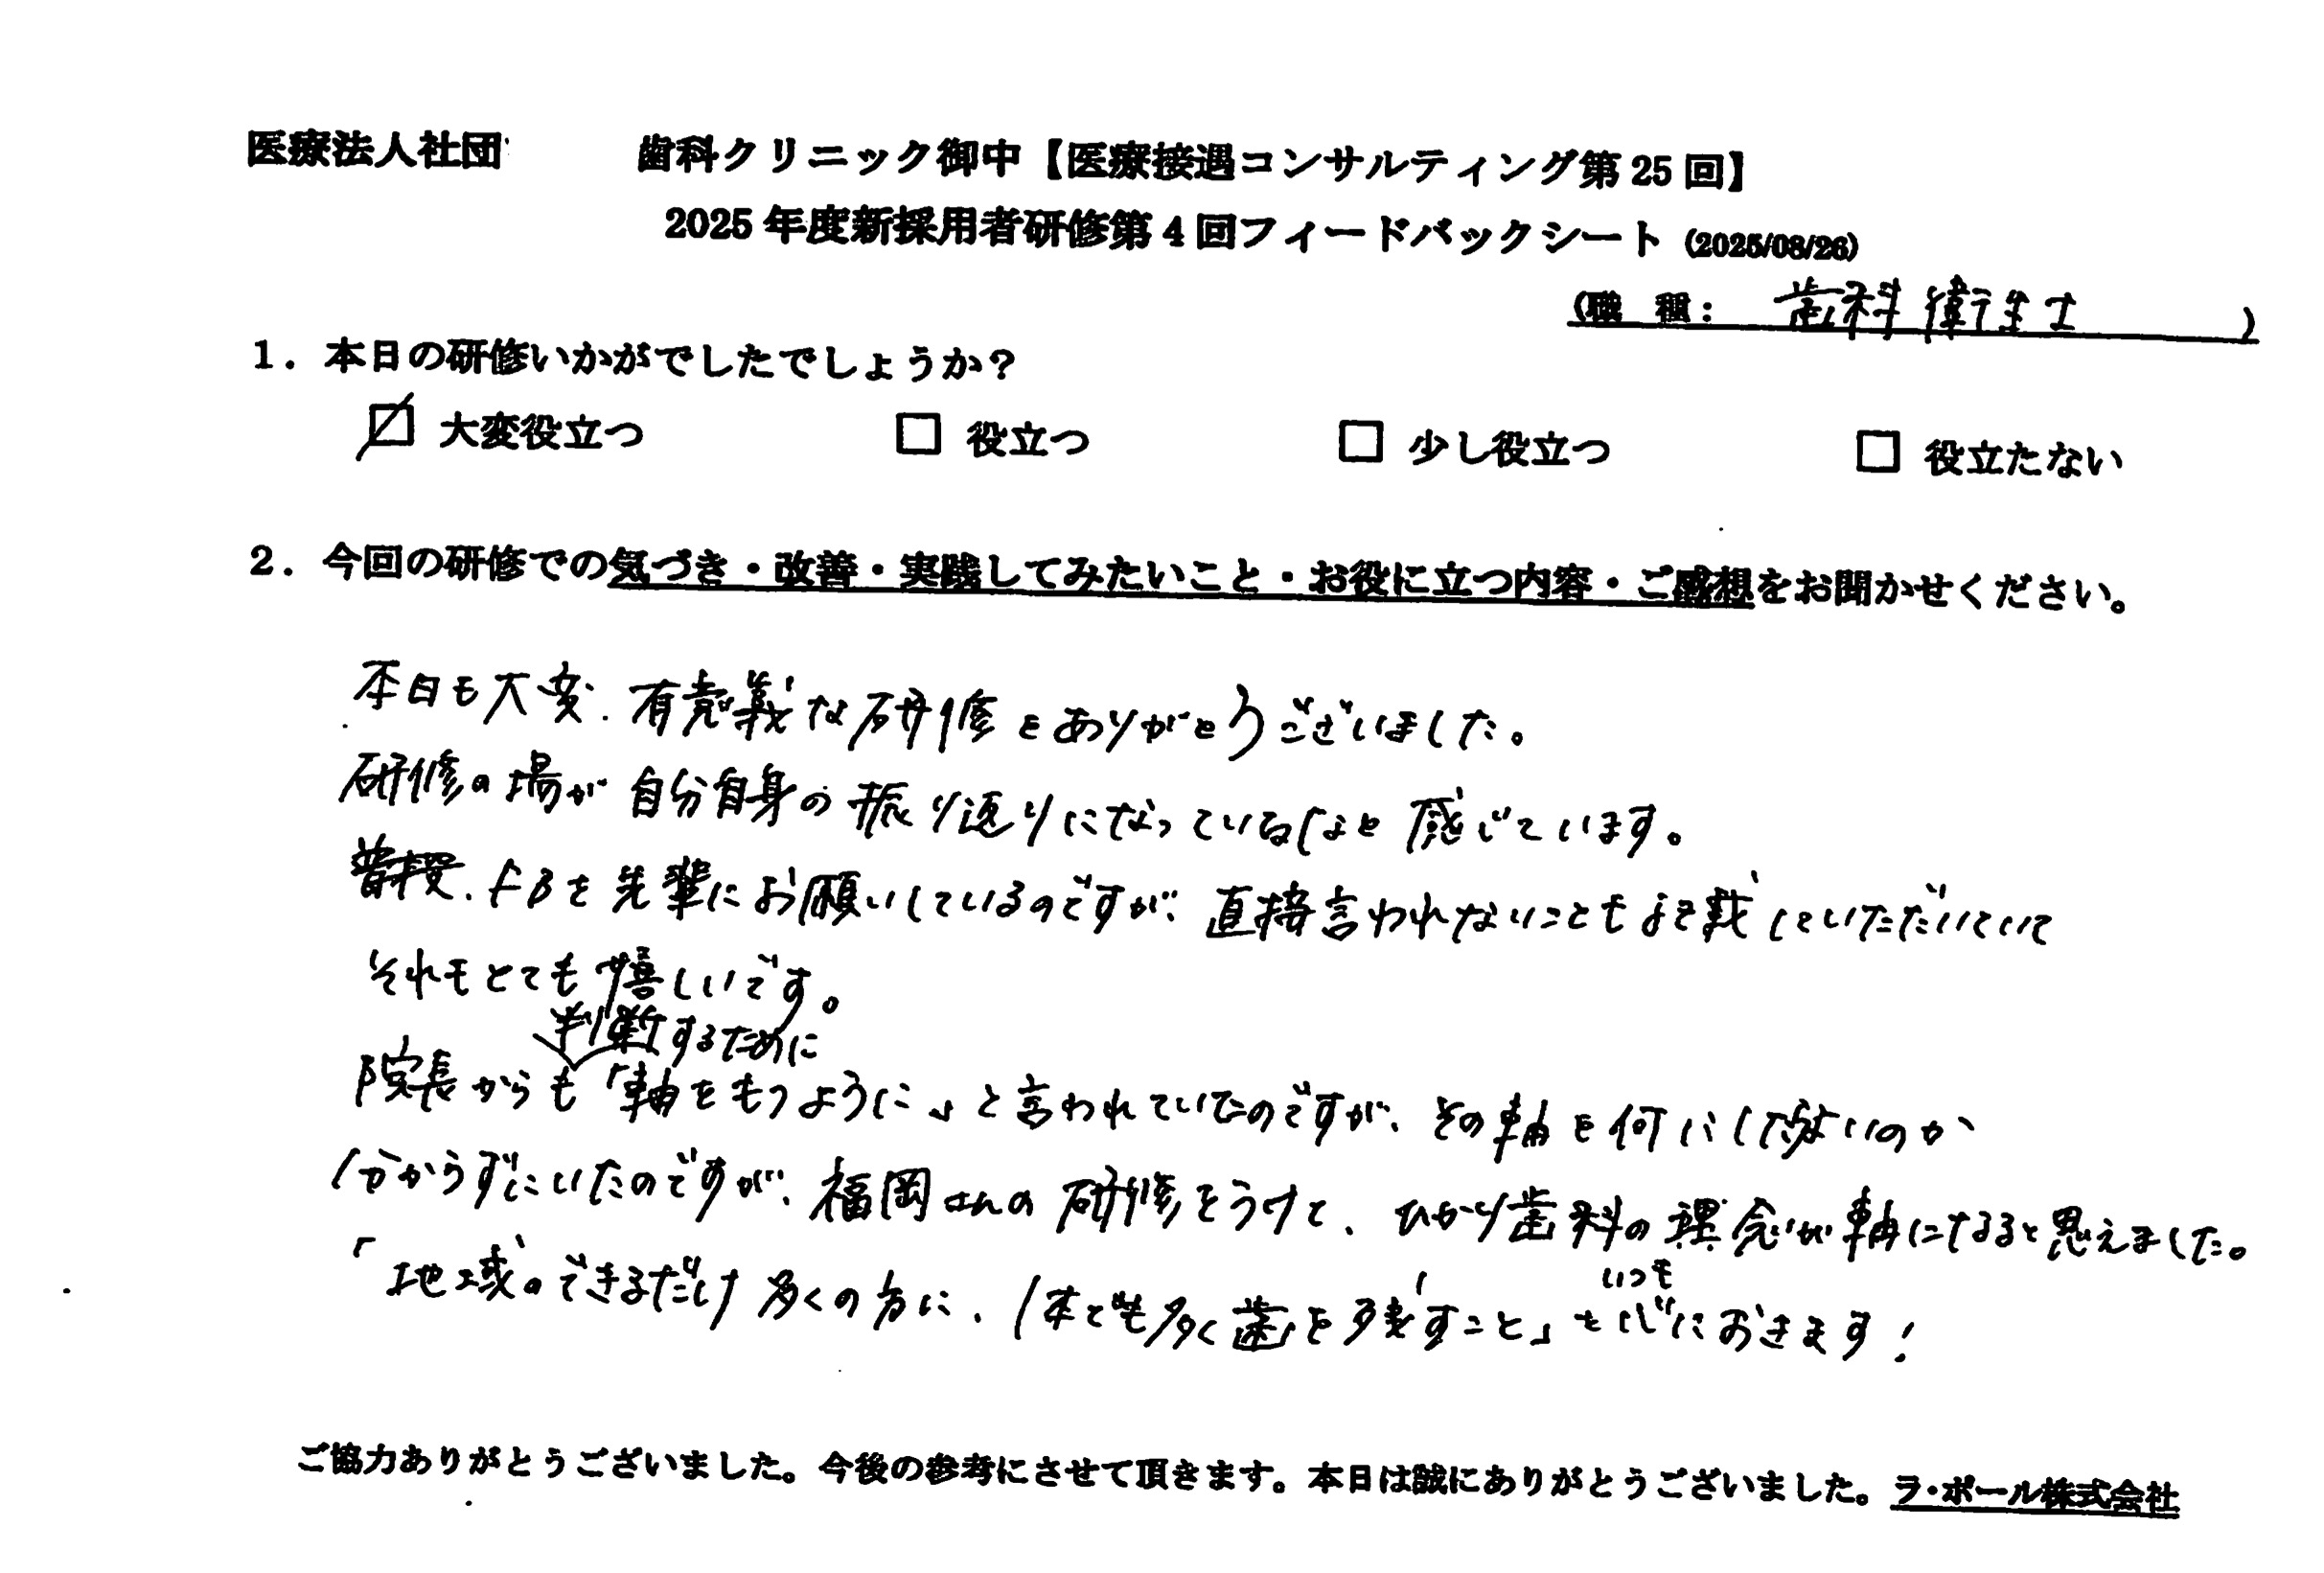 医療法人社団 歯科クリニック御中【医療接遇コンサルティング第25回】
2025年度新採用者研修第4回フィードバックシート (2025/08/26)
(職 種: 歯科衛生士 )
1. 本日の研修いかがでしたでしょうか?
☑ 大変役立つ □ 役立つ □ 少し役立つ □ 役立たない
2. 今回の研修での気づき・改善・実践してみたいこと・お役に立つ内容・ご感想をお聞かせください。
本日も大変、有意義な研修をありがとうございました。
研修の場が自分自身の振り返りになっているなと感じています。
普段、FBを先輩にお願いしているのですが、直接言われないことも記載していただいていて
それもとても嬉しいです。
判断するために
院長からも「軸をもつように」と言われていたのですが、その軸を何にしたらいいのか
分からずにいたのですが、福岡さんの研修をうけて、ひかり歯科の理念が軸になると思えました。
いつも
「地域のできるだけ多くの方に、1本でも多く歯を残すこと」を心におきます!
ご協力ありがとうございました。今後の参考にさせて頂きます。本日は誠にありがとうございました。ラ・ポール株式会社